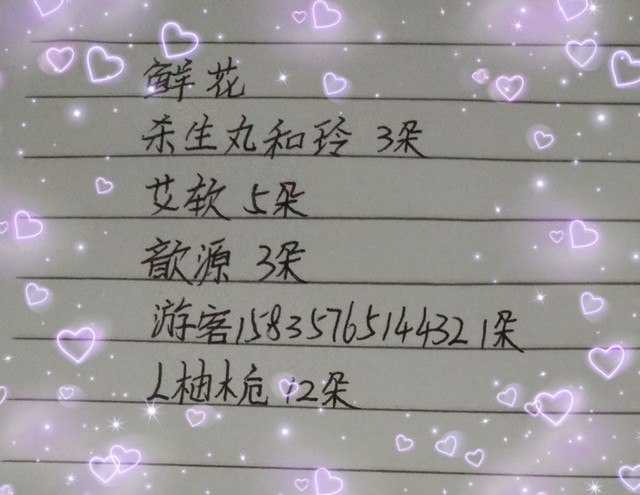 鲜花
杀生丸和玲 3朵
艾软 5朵
歆源 3朵
游客1583576514432 1朵
L柚木卮 12朵